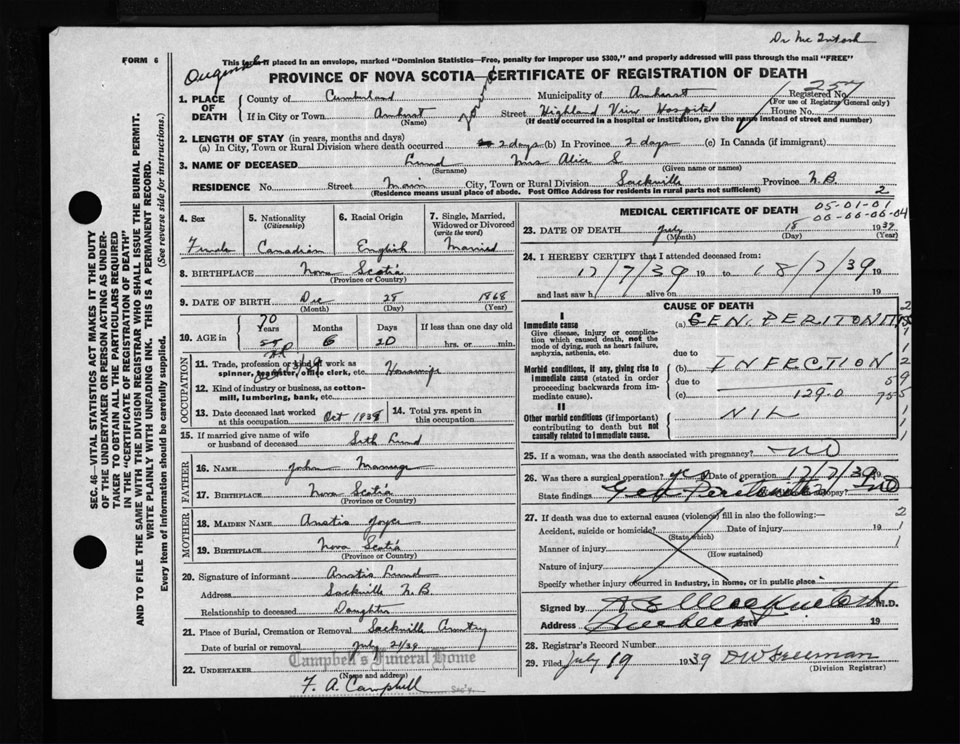 Dr McIntosh
FORM 6
This form if placed in an envelope, marked "Dominion Statistics—Free, penalty for improper use $300," and properly addressed will pass through the mail "FREE"
Original
PROVINCE OF NOVA SCOTIA—CERTIFICATE OF REGISTRATION OF DEATH
257
1. PLACE OF DEATH
County of Cumberland Municipality of Amherst Registered No.
(For use of Registrar General only)
If in City or Town Amherst Street Highland View Hospital House No.
(Name) (If death occurred in a hospital or institution, give the name instead of street and number)
2. LENGTH OF STAY (in years, months and days)
(a) In City, Town or Rural Division where death occurred 2 days (b) In Province 2 days (c) In Canada (if immigrant)
3. NAME OF DECEASED Lund Mrs Alice S
(Surname) (Given name or names)
RESIDENCE No. Street Main City, Town or Rural Division Sackville Province N.B.
(Residence means usual place of abode. Post Office Address for residents in rural parts not sufficient) 2
4. Sex
Female
5. Nationality
(Citizenship)
Canadian
6. Racial Origin
English
7. Single, Married, Widowed or Divorced
(write the word)
Married
8. BIRTHPLACE Nova Scotia
(Province or Country)
9. DATE OF BIRTH Dec 28 1868
(Month) (Day) (Year)
10. AGE in
70
Years Months Days If less than one day old
6 20 hrs. or min.
OCCUPATION
11. Trade, profession or kind of work as
spinner, teamster, office clerk, etc. Housewife
12. Kind of industry or business, as cotton-
mill, lumbering, bank, etc.
13. Date deceased last worked
at this occupation Oct 1938
14. Total yrs. spent in
this occupation
15. If married give name of wife
or husband of deceased Seth Lund
FATHER
16. NAME John
17. BIRTHPLACE Nova Scotia
(Province or Country)
MOTHER
18. MAIDEN NAME Anstis Joyce
19. BIRTHPLACE Nova Scotia
(Province or Country)
20. Signature of informant Anstis Lund
Address Sackville N.B.
Relationship to deceased Daughter
21. Place of Burial, Cremation or Removal Sackville
Date of burial or removal July 21/39
Campbell's Funeral Home
22. UNDERTAKER (Name and address)
F. A. Campbell
MEDICAL CERTIFICATE OF DEATH
05-01-01
00-00-06-04
23. DATE OF DEATH July 18 1939
(Month) (Day) (Year)
24. I HEREBY CERTIFY that I attended deceased from:
17/7/39 19 to 18/7/39 19
and last saw h alive on 19
CAUSE OF DEATH
I
Immediate cause
Give disease, injury or complication which caused death, not the mode of dying, such as heart failure, asphyxia, asthenia, etc.
(a) GEN. PERITONITIS
due to
Morbid conditions, if any, giving rise to immediate cause (stated in order proceeding backwards from immediate cause).
(b) INFECTION
due to
(c) 129.0
II
Other morbid conditions (if important) contributing to death but not causally related to immediate cause.
NIL
25. If a woman, was the death associated with pregnancy? NO
26. Was there a surgical operation? yes Date of operation 17/7/39 19
State findings Gen Peritonitis Autopsy? NO
27. If death was due to external causes (violence) fill in also the following:—
Accident, suicide or homicide? Date of injury 19
(State which)
Manner of injury
(How sustained)
Nature of injury
Specify whether injury occurred in industry, in home, or in public place
Signed by M.D.
Address Date 19
28. Registrar's Record Number
29. Filed July 19 1939 D W Freeman
(Division Registrar)
SEC. 46—VITAL STATISTICS ACT MAKES IT THE DUTY
OF THE UNDERTAKER OR PERSON ACTING AS UNDER-
TAKER TO OBTAIN ALL THE PARTICULARS REQUIRED
IN THE "CERTIFICATE OF REGISTRATION OF DEATH"
AND TO FILE THE SAME WITH THE DIVISION REGISTRAR WHO SHALL ISSUE THE BURIAL PERMIT.
WRITE PLAINLY WITH UNFADING INK. THIS IS A PERMANENT RECORD.
Every item of information should be carefully supplied. (See reverse side for instructions.)